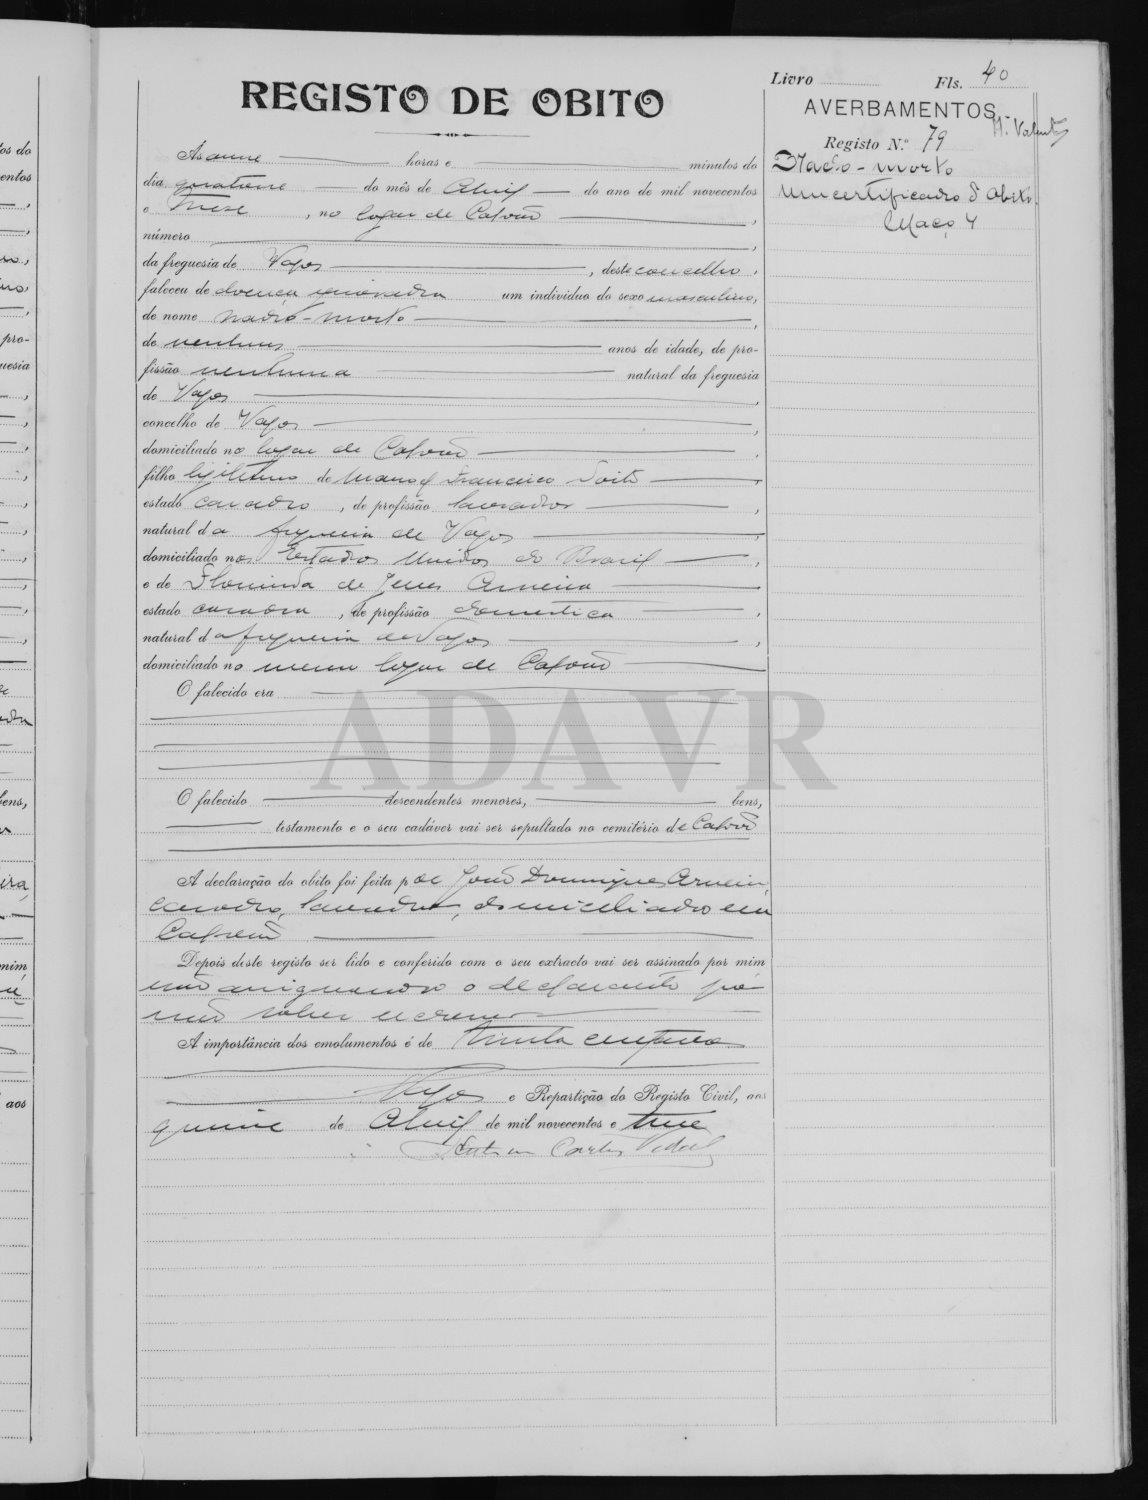 Livro Fls. 40
REGISTO DE OBITO
AVERBAMENTOS
Registo N.º 79
Nado-morto
Um certificado d'obito.
Maço 4
As onze horas e minutos do
dia quatorze do mês de Abril do ano de mil novecentos
e treze, no logar de Calvão,
número
da freguesia de Vagos, deste concelho,
faleceu de doença ignorada um individuo do sexo masculino,
de nome nado-morto,
de nenhuns anos de idade, de pro-
fissão nenhuma natural da freguesia
de Vagos,
concelho de Vagos,
domiciliado no logar de Calvão,
filho legitimo de Manoel Francisco,
estado casado, de profissão lavrador,
natural da freguesia de Vagos,
domiciliado nos Estados Unidos do Brasil,
e de de Jesus
estado casada, de profissão domestica,
natural da freguesia de Vagos,
domiciliado no mesmo logar de Calvão
O falecido era
ADAVR
O falecido descendentes menores, bens,
testamento e o seu cadáver vai ser sepultado no cemitério de Calvão
A declaração do obito foi feita por João Domingues
casado, lavrador, domiciliado em
Calvão
Depois deste registo ser lido e conferido com o seu extracto vai ser assinado por mim
não assignando o declarante por
não saber escrever
A importância dos emolumentos é de trinta centavos
Vagos e Repartição do Registo Civil, aos
quinze de Abril de mil novecentos e treze